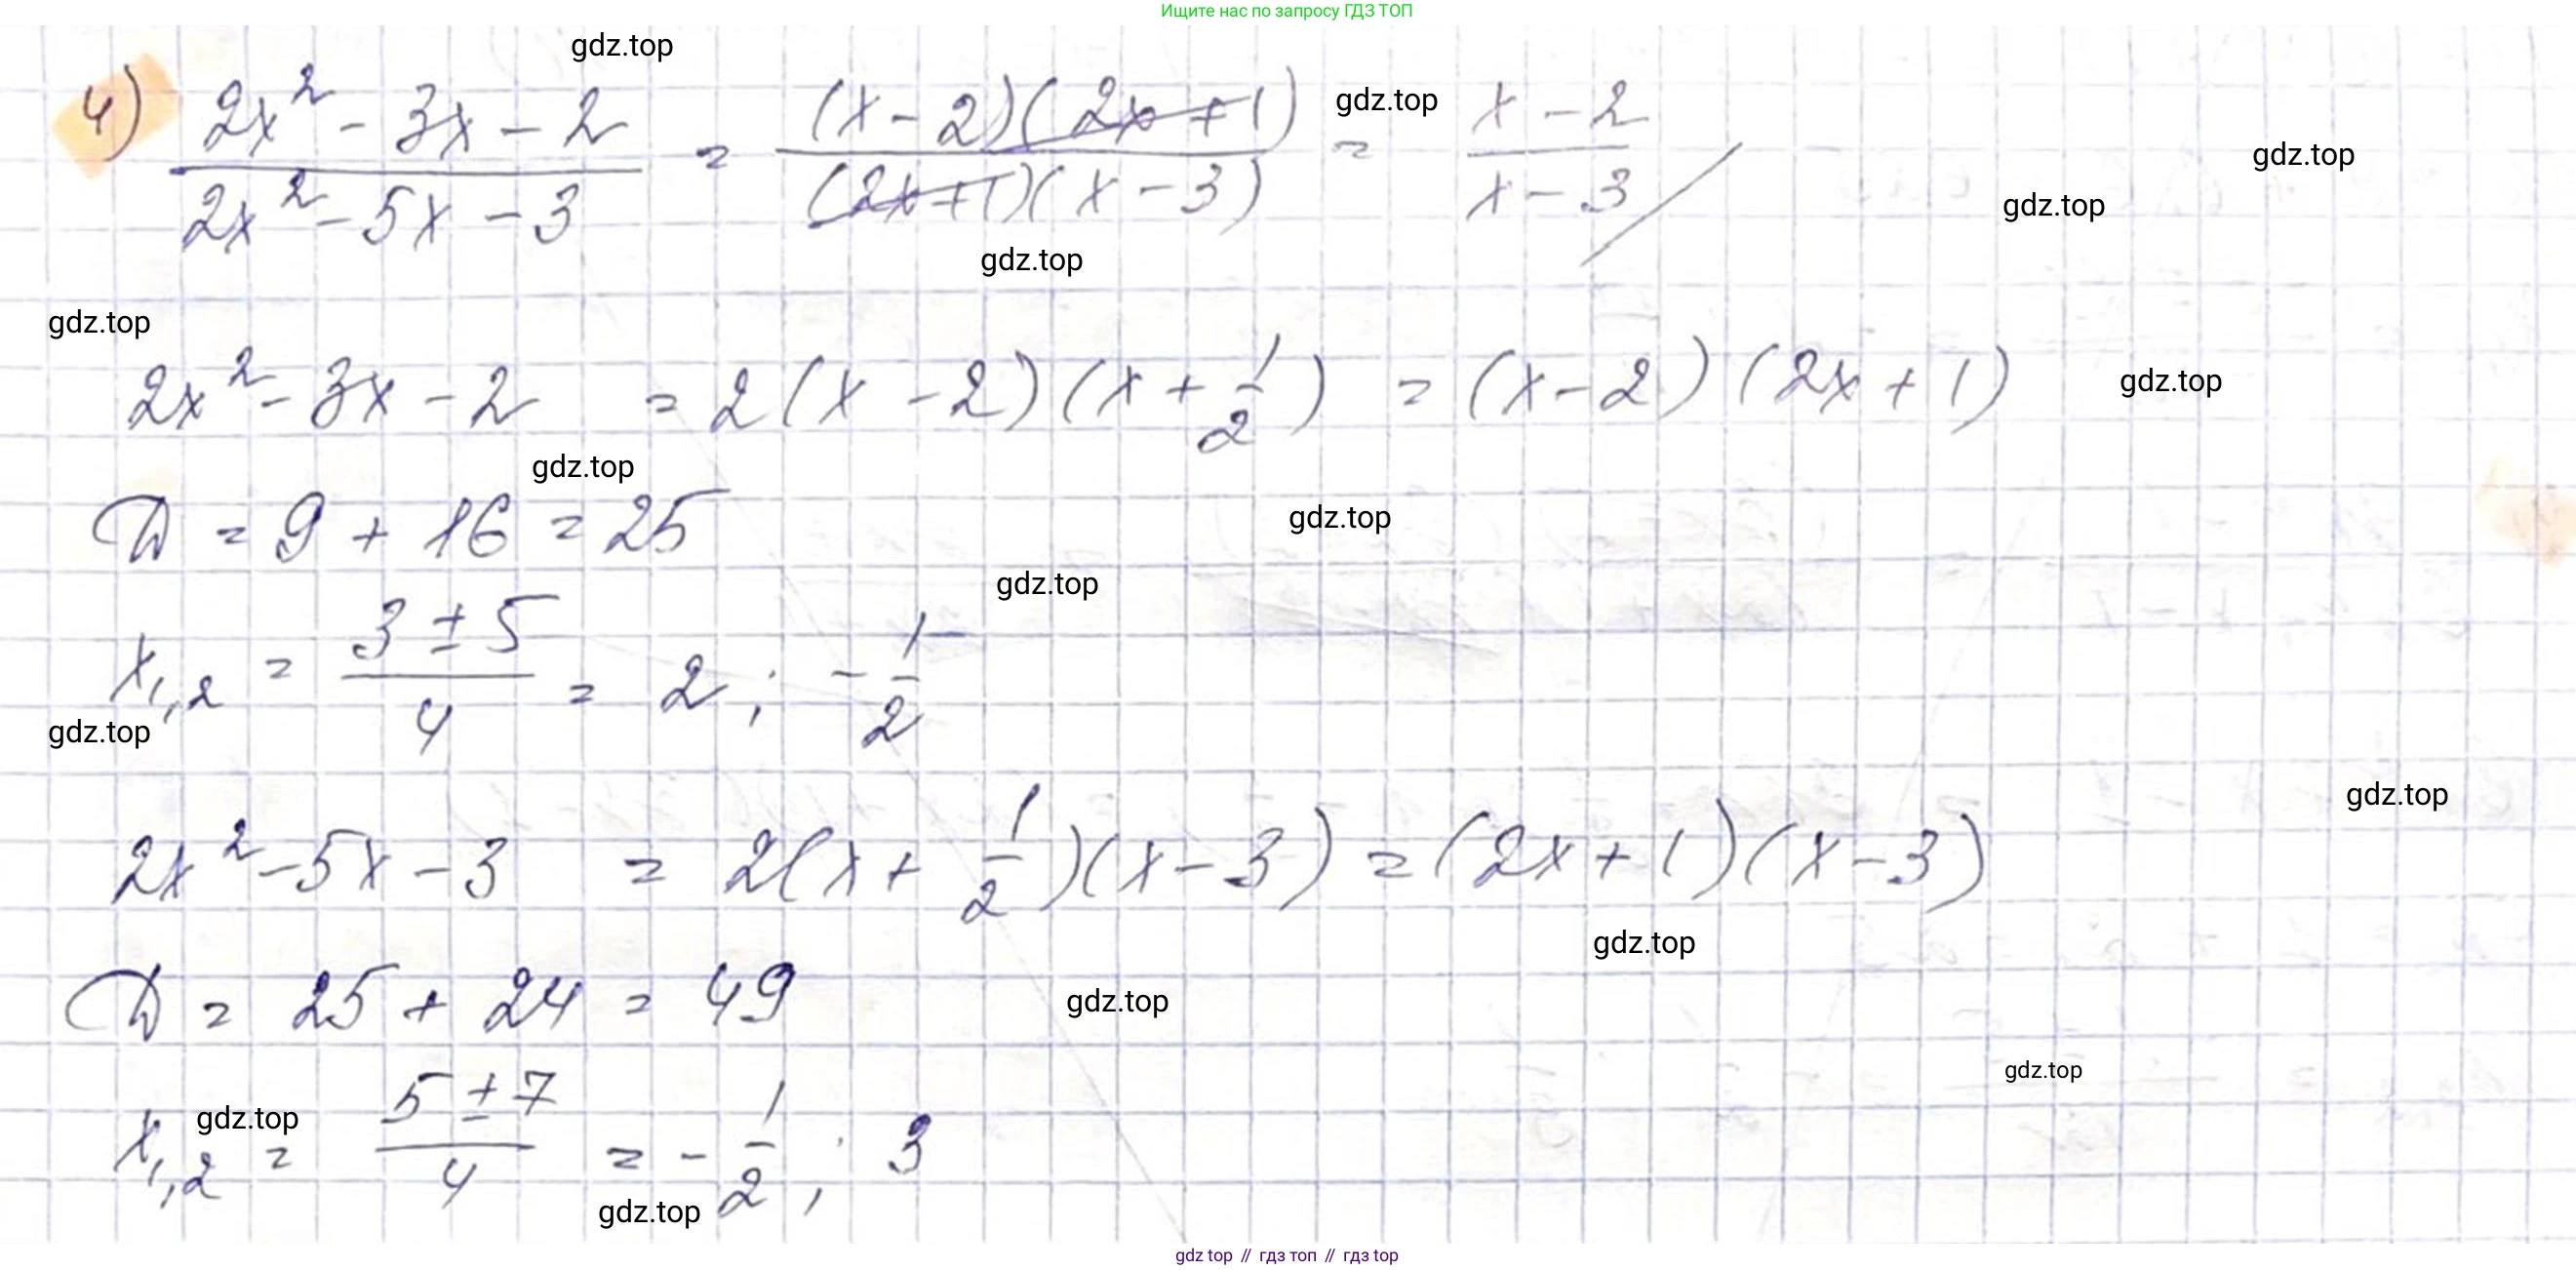 Ищите нас по запросу ГДЗ ТОП
gdz.top
4) (2x² - 3x - 2)/(2x² - 5x - 3) = ((x - 2)(2x + 1))/((2x + 1)(x - 3)) = (x - 2)/(x - 3)
gdz.top
gdz.top
gdz.top
gdz.top
gdz.top
2x² - 3x - 2 = 2(x - 2)(x + 1/2) = (x - 2)(2x + 1)
gdz.top
gdz.top
D = 9 + 16 = 25
gdz.top
gdz.top
x1,2 = (3 ± 5)/4 = 2; -1/2
gdz.top
gdz.top
2x² - 5x - 3 = 2(x + 1/2)(x - 3) = (2x + 1)(x - 3)
gdz.top
D = 25 + 24 = 49
gdz.top
gdz.top
x1,2 = (5 ± 7)/4 = -1/2; 3
gdz.top
gdz.top
gdz top // гдз топ // гдз top